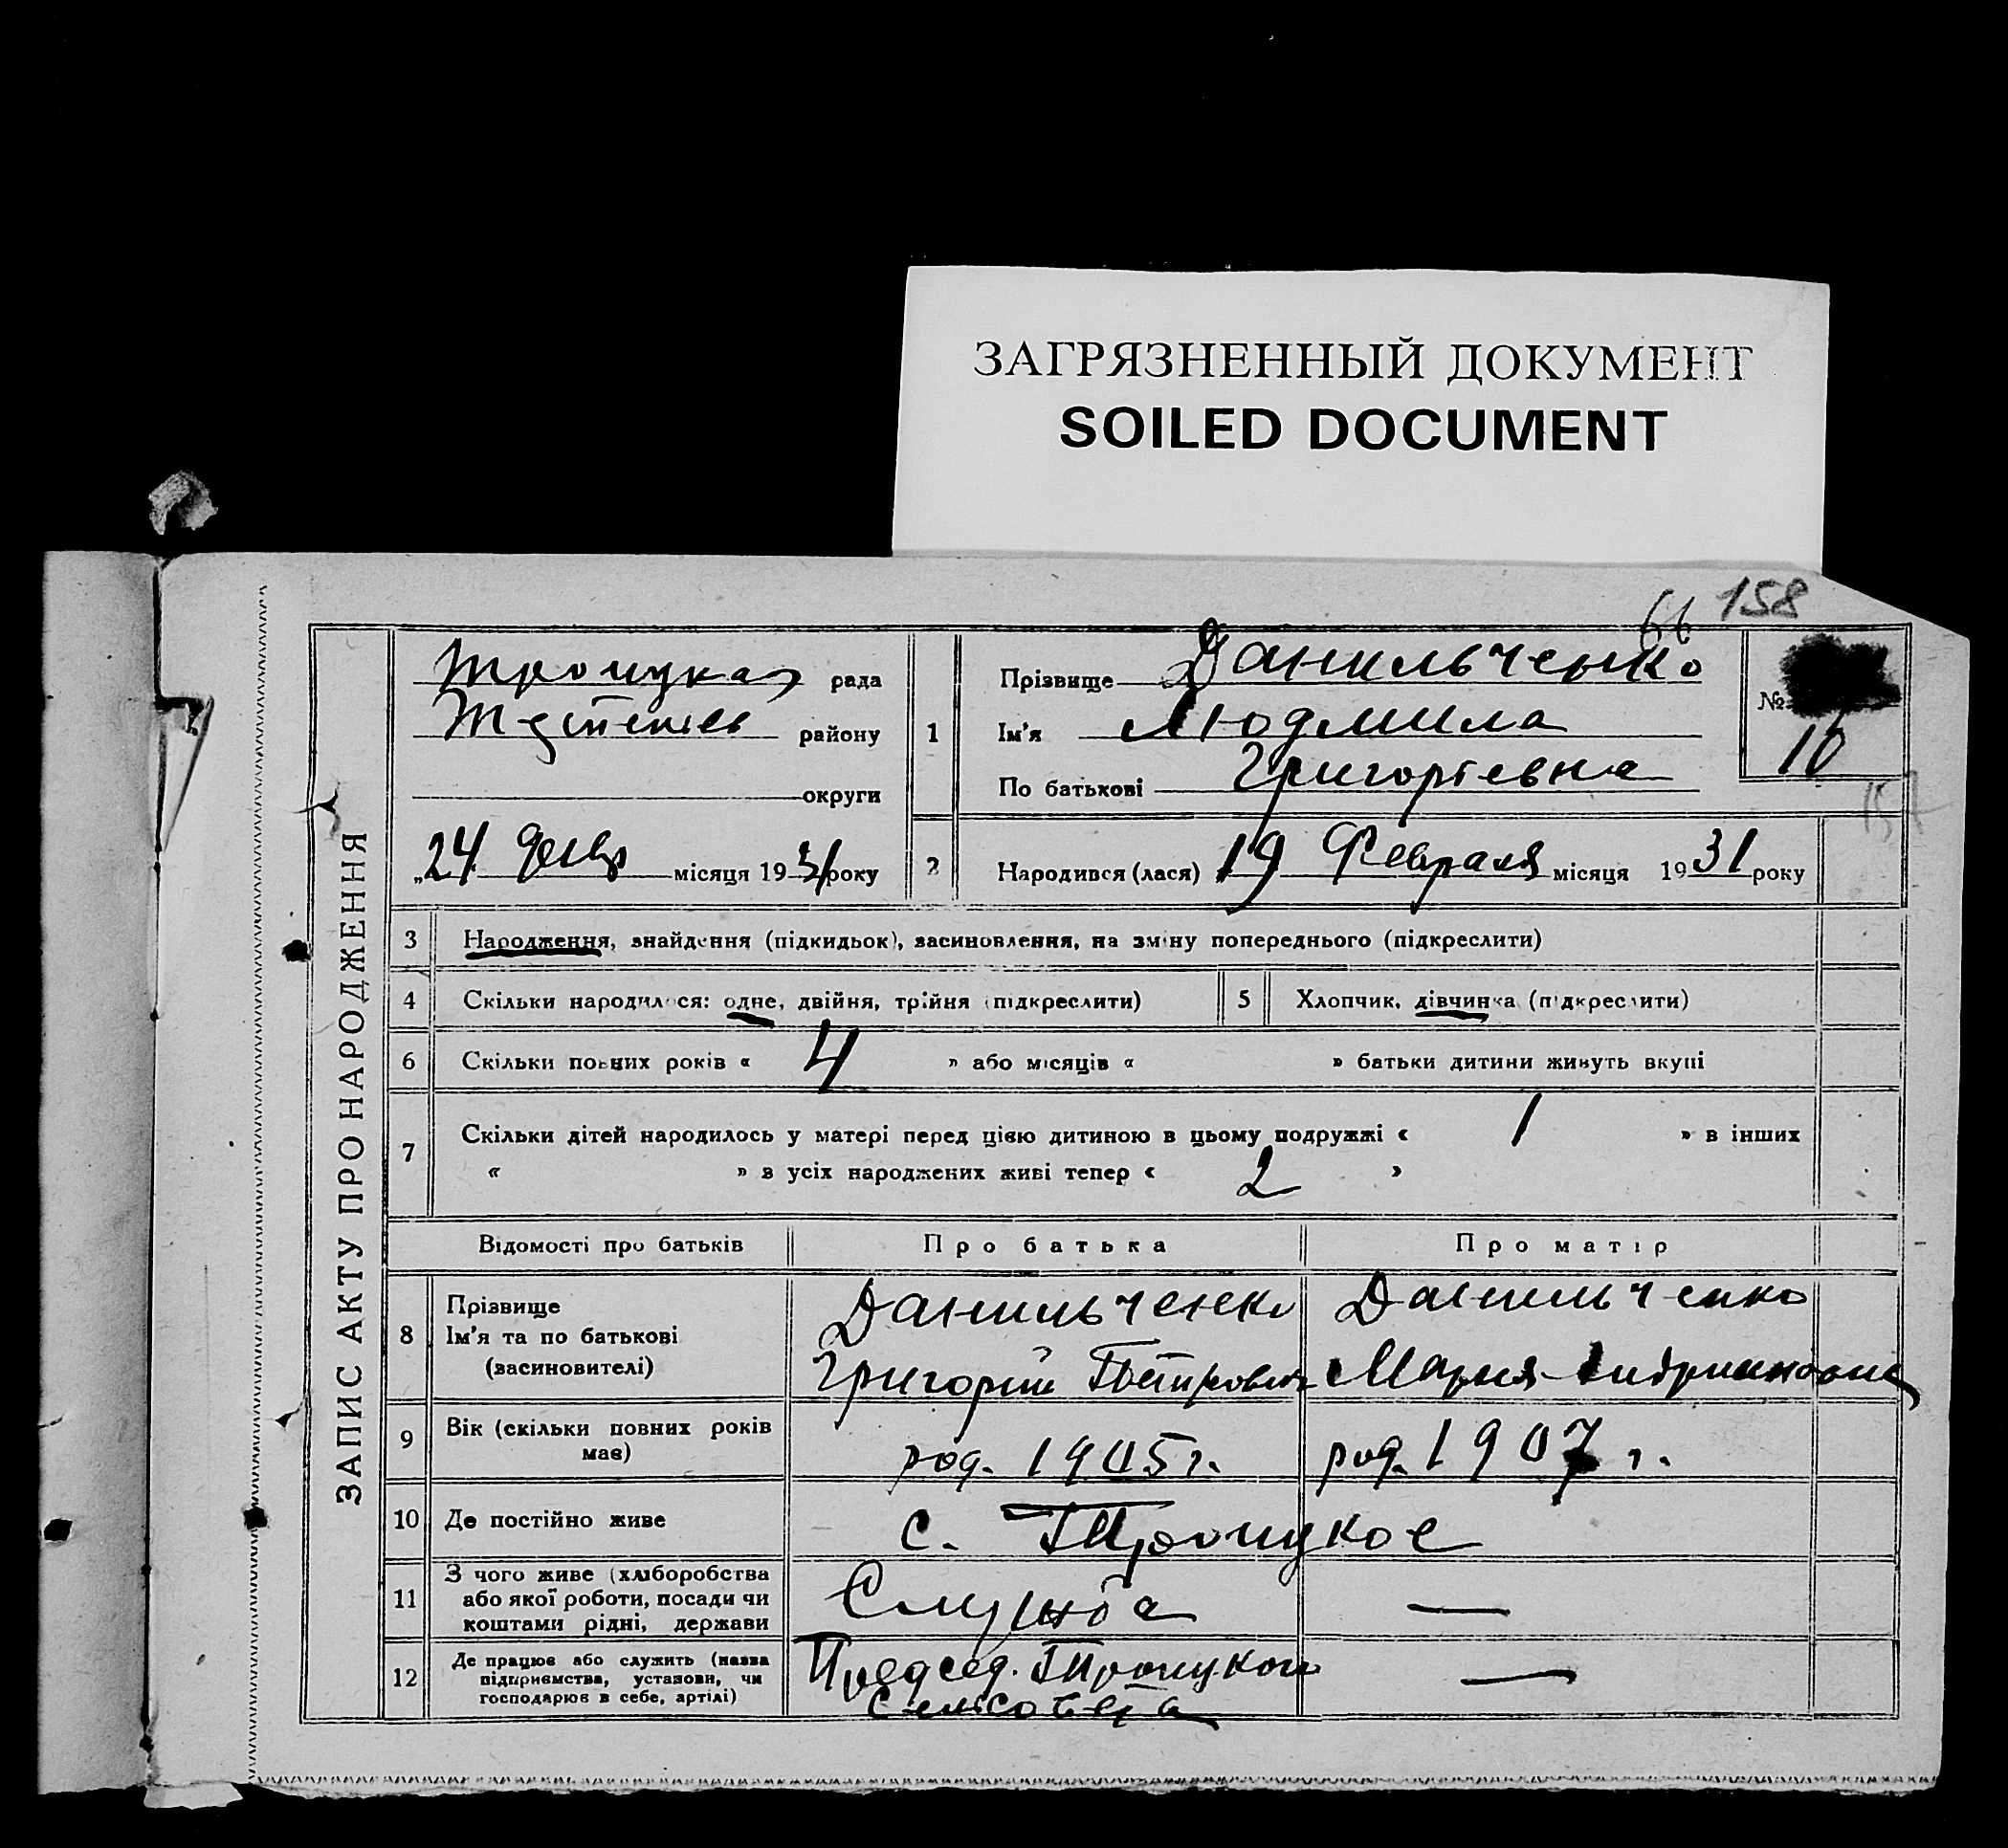 ЗАГРЯЗНЕННЫЙ ДОКУМЕНТ
SOILED DOCUMENT
66 158
ЗАПИС АКТУ ПРО НАРОДЖЕННЯ
Троицкая рада
району
округи
„24 февр місяця 1931 року
1
Прізвище Данильченко
Ім'я Людмила
По батькові Григорьевна
№
16
2 Народився (лася) 19 Февраля місяця 1931 року
3 Народження, знайдення (підкидьок), засиновлення, на зміну попереднього (підкреслити)
4 Скільки народилося: одне, двійня, трійня (підкреслити)
5 Хлопчик, дівчинка (підкреслити)
6 Скільки повних років « 4 » або місяців « » батьки дитини живуть вкупі
7 Скільки дітей народилось у матері перед цією дитиною в цьому подружжі « 1 » в інших
« » з усіх народжених живі тепер « 2 »
Відомості про батьків Про батька Про матір
8 Прізвище
Ім'я та по батькові
(засиновителі)
Данильченко
Григорий Петрович
Данильченко
Мария
9 Вік (скільки повних років
має)
род. 1905 г. род. 1907 г.
10 Де постійно живе с. Троицкое
11 З чого живе (хліборобства
або якої роботи, посади чи
коштами рідні, держави
Служба —
12 Де працює або служить (назва
підприємства, установи, чи
господарює в себе, артілі)
Председ. Троицкого
Сельсовета
—